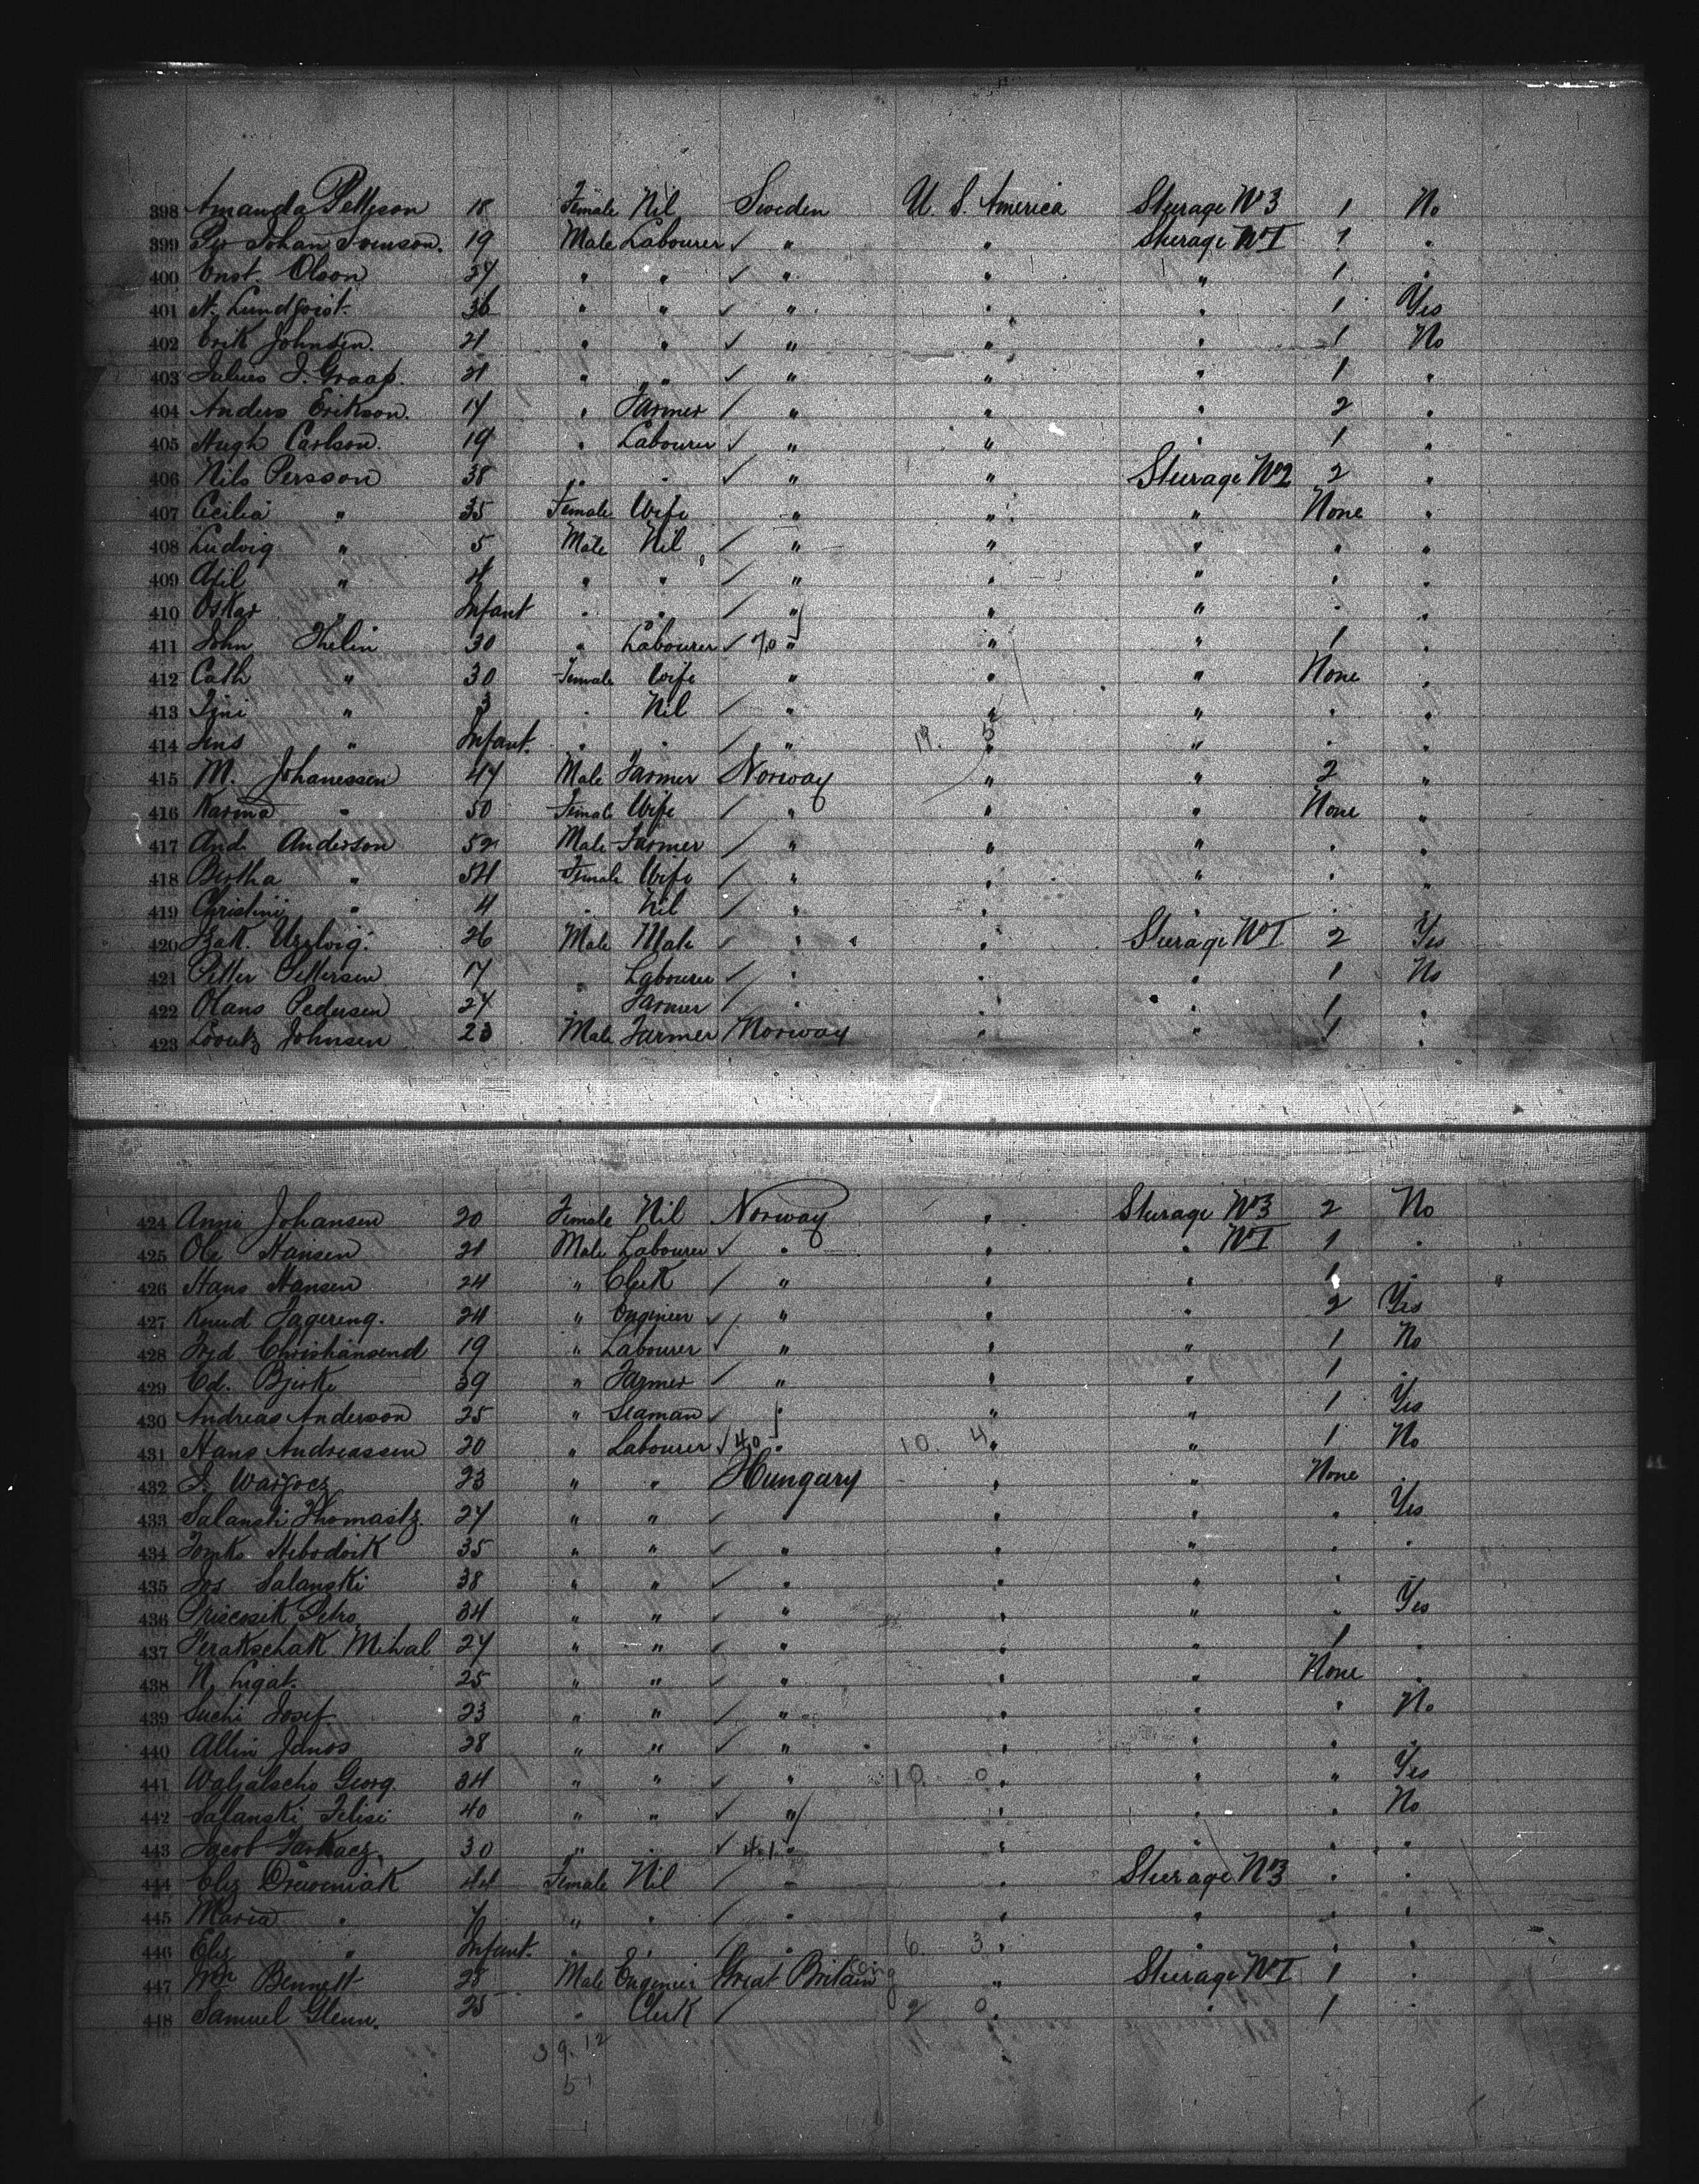 398 Amanda Pettyson 18 Female Nil Sweden U. S. America Sturage No 3 1 No
399 Per Johan Svenson. 19 Male Labourer ✓ " " Sturage No I 1 "
400 Ernst. Olson 27 " " ✓ " " " 1 "
401 N. Lundqvist. 36 " " ✓ " " " 1 Yes
402 Erik Johnsen. 21 " " ✓ " " " 1 No
403 Julius J. Graap. 21 " " ✓ " " " 1 "
404 Anders Erikson. 17 " Farmer / " " " 2 "
405 Hugh Carlson. 19 " Labourer ✓ " " " 1 "
406 Nils Persson 38 " " ✓ " " Sturage No 2 2 "
407 Cecilia " 35 Female Wife " " " None "
408 Ludvig " 5 Male Nil / " " " " "
409 Axil " 4 " " / " " " " "
410 Oskar " Infant " " / " " " " "
411 John Thelin 30 " Labourer ✓ 7.0 " " " 1 "
412 Cath " 30 Female Wife " " " None "
413 " 3 " Nil / " " " " "
414 Jens " Infant. " " / " 17. 5 " " " "
415 M. Johanessen 47 Male Farmer Norway " " 2 "
416 Karina " 50 Female Wife / " " " None "
417 And. Anderson 52 Male Farmer / " " " " "
418 Bertha " 54 Female Wife / " " " " "
419 Christini " 4 " Nil / " " " " "
420 26 Male Male / " " Sturage No I 2 Yes
421 Petter Pettersen 17 " Labourer ✓ " " " 1 No
422 Hans Pedersen 27 " Farmer / " " " 1 "
423 Lorentz Johnsen 23 Male Farmer / Norway " " 1 "
424 Anni Johansen 20 Female Nil Norway " Sturage No 3 2 No
425 Ole Hansen 21 Male Labourer ✓ " " " No I 1 "
426 Hans Hansen 24 " Clerk / " " " 1 "
427 Knud Fagereng. 24 " Engineer ✓ " " " 2 Yes
428 Fred Christiansend 19 " Labourer ✓ " " " 1 No
429 Ed. Bjerke 39 " Farmer / " " " 1 "
430 Andreas Anderson 25 " Seaman ✓ " " " 1 Yes
431 Hans Andreassen 20 " Labourer ✓ 4.0 " 10. 4 " " 1 No
432 23 " " Hungary " " None "
433 Salanski Thomastz. 27 " " ✓ " " " " Yes
434 35 " " ✓ " " " " "
435 Jos Salanski 38 " " ✓ " " " " "
436 Petro 34 " " ✓ " " " " Yes
437 Mihal 27 " " ✓ " " " 1 "
438 N. Ligat. 25 " " ✓ " " " None "
439 Suchi Josef 23 " " / " " " " No
440 Allin Janos 28 " " ✓ " " " " "
441 Georg. 34 " " ✓ " 19. 0 " " " Yes
442 Salanski Felisi 40 " " ✓ " " " " No
443 Jacob 30 " " ✓ 4.1 " " " " "
444 Eliz 44 Female Nil / " " Sturage No 3 " "
445 Maria " " " / " " " " "
446 Eliz " Infant. " " / " 6. 3 " " " "
447 Wm Bennett 28 Male Engineer Great Britain " Sturage No I 1 "
448 Samuel Glenn. 25 " Clerk / 2 0 " " 1 "
39. 12
51